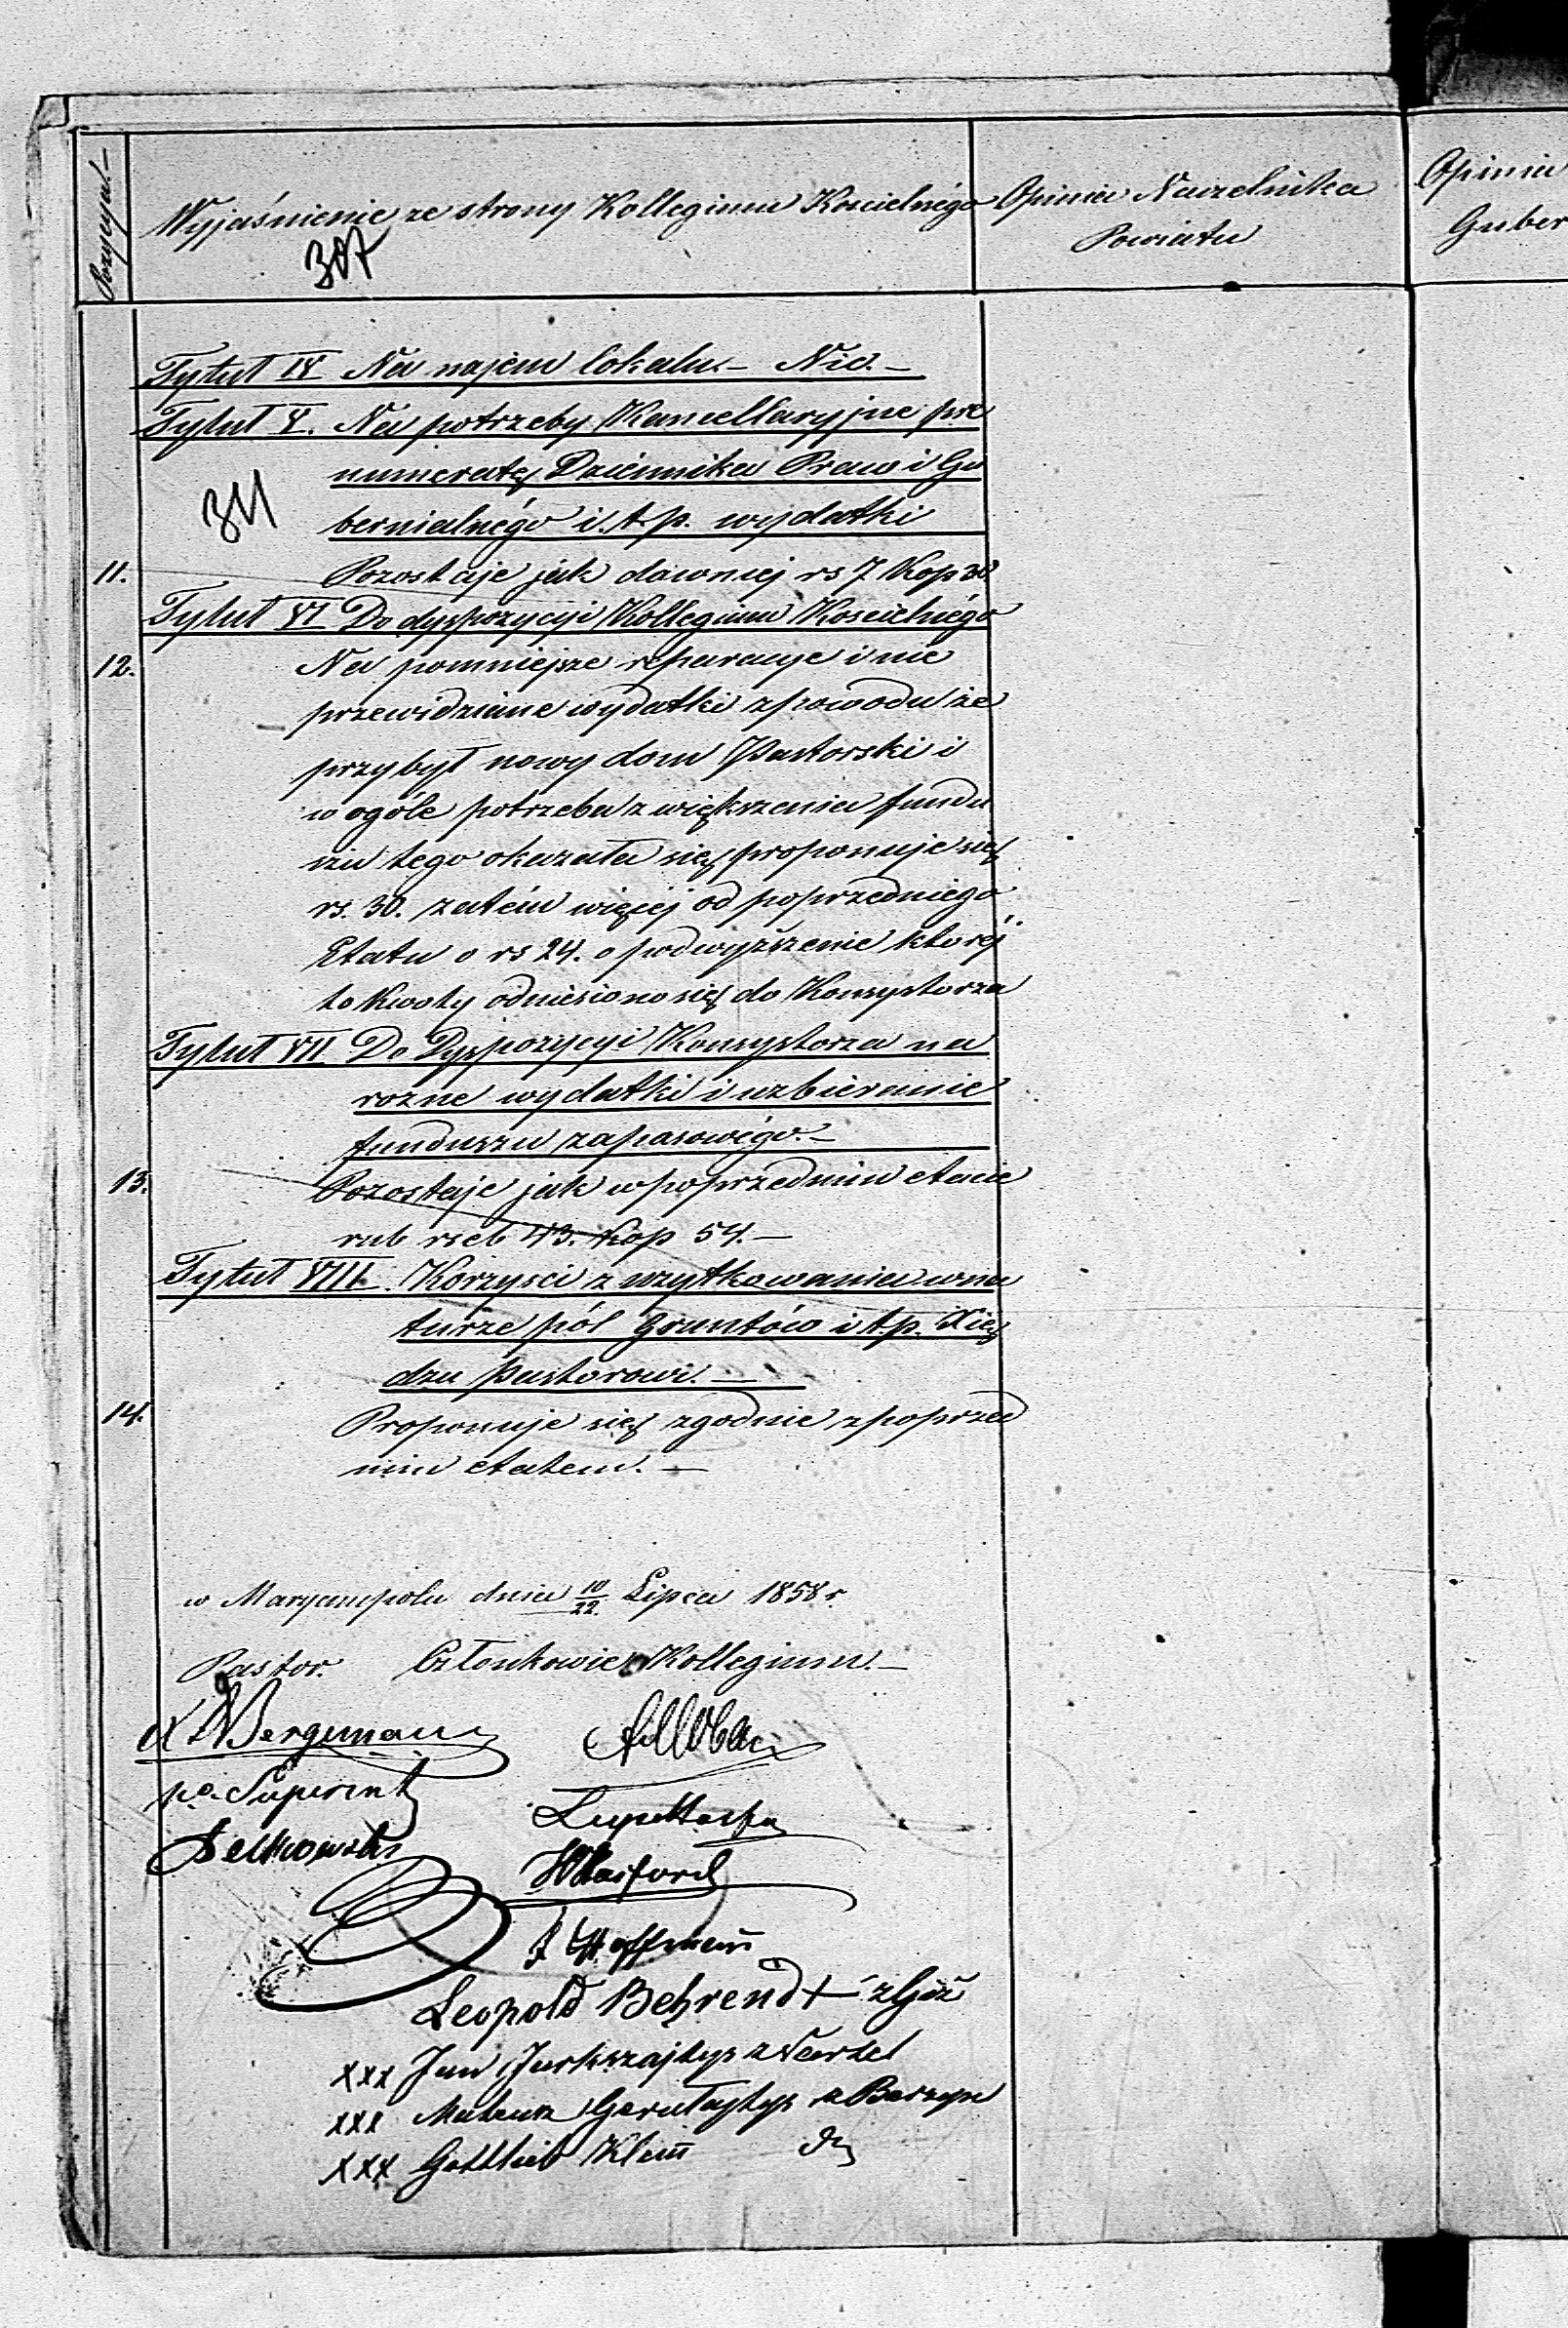 Pozycya.–
Wyjaśnienie ze strony Kollegium Kościelnégo
Opinia Naczelnika
Powiatu
Opinia
Guber
307
Tytuł IV Na najem lokalu. – Nic. –
Tytuł V. Na potrzeby Kancellaryjne pre
numeratę Dziénnika Praw i Gu
311
bernialnégo i. t. p. wydatki
11. Pozostaje jak dawniej rs 7. Kop 30.
Tytuł VI Do dyspozycyi Kollegium Kościelnégo
12. Na pomniejsze reparacye i nie
przewidziane wydatki z powodu że
przybył nowy dom Pastorski i
w ogóle potrzeba zwiększenia fundu
szu tego okazała się, proponuje się
rs. 30. zatém więcéj od poprzedniego
Etatu o rs 24. o podwyższenie któréj
to Kwoty odniesiono się do Konsystorza
Tytuł VII Do Dyspozycyi Konsystorza na
rozne wydatki i uzbieranie
funduszu zapasowégo. –
13. Pozostaje jak w poprzednim etacie
rub sreb 43. Kop 54. –
Tytuł VIII. Korzysci z uzytkowania w na
turze pól Gruntów i t. p. Xię
dzu Pastorowi. –
14. Proponuje się zgodnie z poprzed
nim etatem. –
w Maryampolu dnia 10/22. Lipca 1858 r.
Pastor. Członkowie Kollegium. –
Bergmann
po. Superint
J Hoffmann
Leopold Behrendt z
xxx Jan Jurkszajtys z
xxx Mateusz z
xxx Gottlieb Klemm